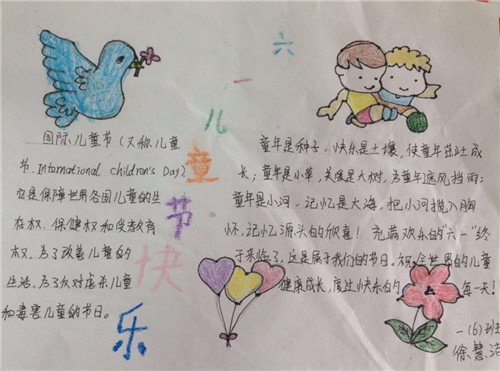 六
一
儿
童
节
快
乐
国际儿童节(又称儿童
节,International children's Day)
它是保障世界各国儿童的生
存权、保健权和受教育
权,为了改善儿童的
生活,为了反对虐杀儿童
和毒害儿童的节日。
童年是种子,快乐是土壤,使童年茁壮成
长;童年是小草,关怀是大树,为童年遮风挡雨;
童年是小河,记忆是大海,把小河揽入胸
怀,记忆源头的欣喜!充满欢乐的"六一"终
于来临了,这是属于我们的节日。祝全世界的儿童
健康成长,度过快乐的每一天!
一(6)班
徐慧洁